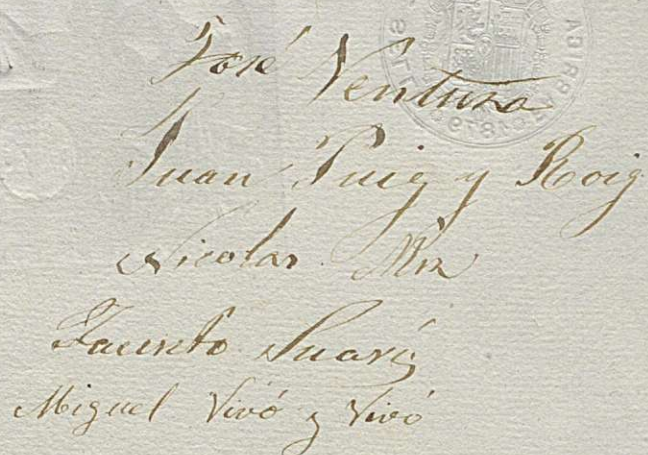 José Ventura
Juan Puig y Roig
Nicolas Mir
Jacinto Suaríz
Miguel Vivó y Vivó